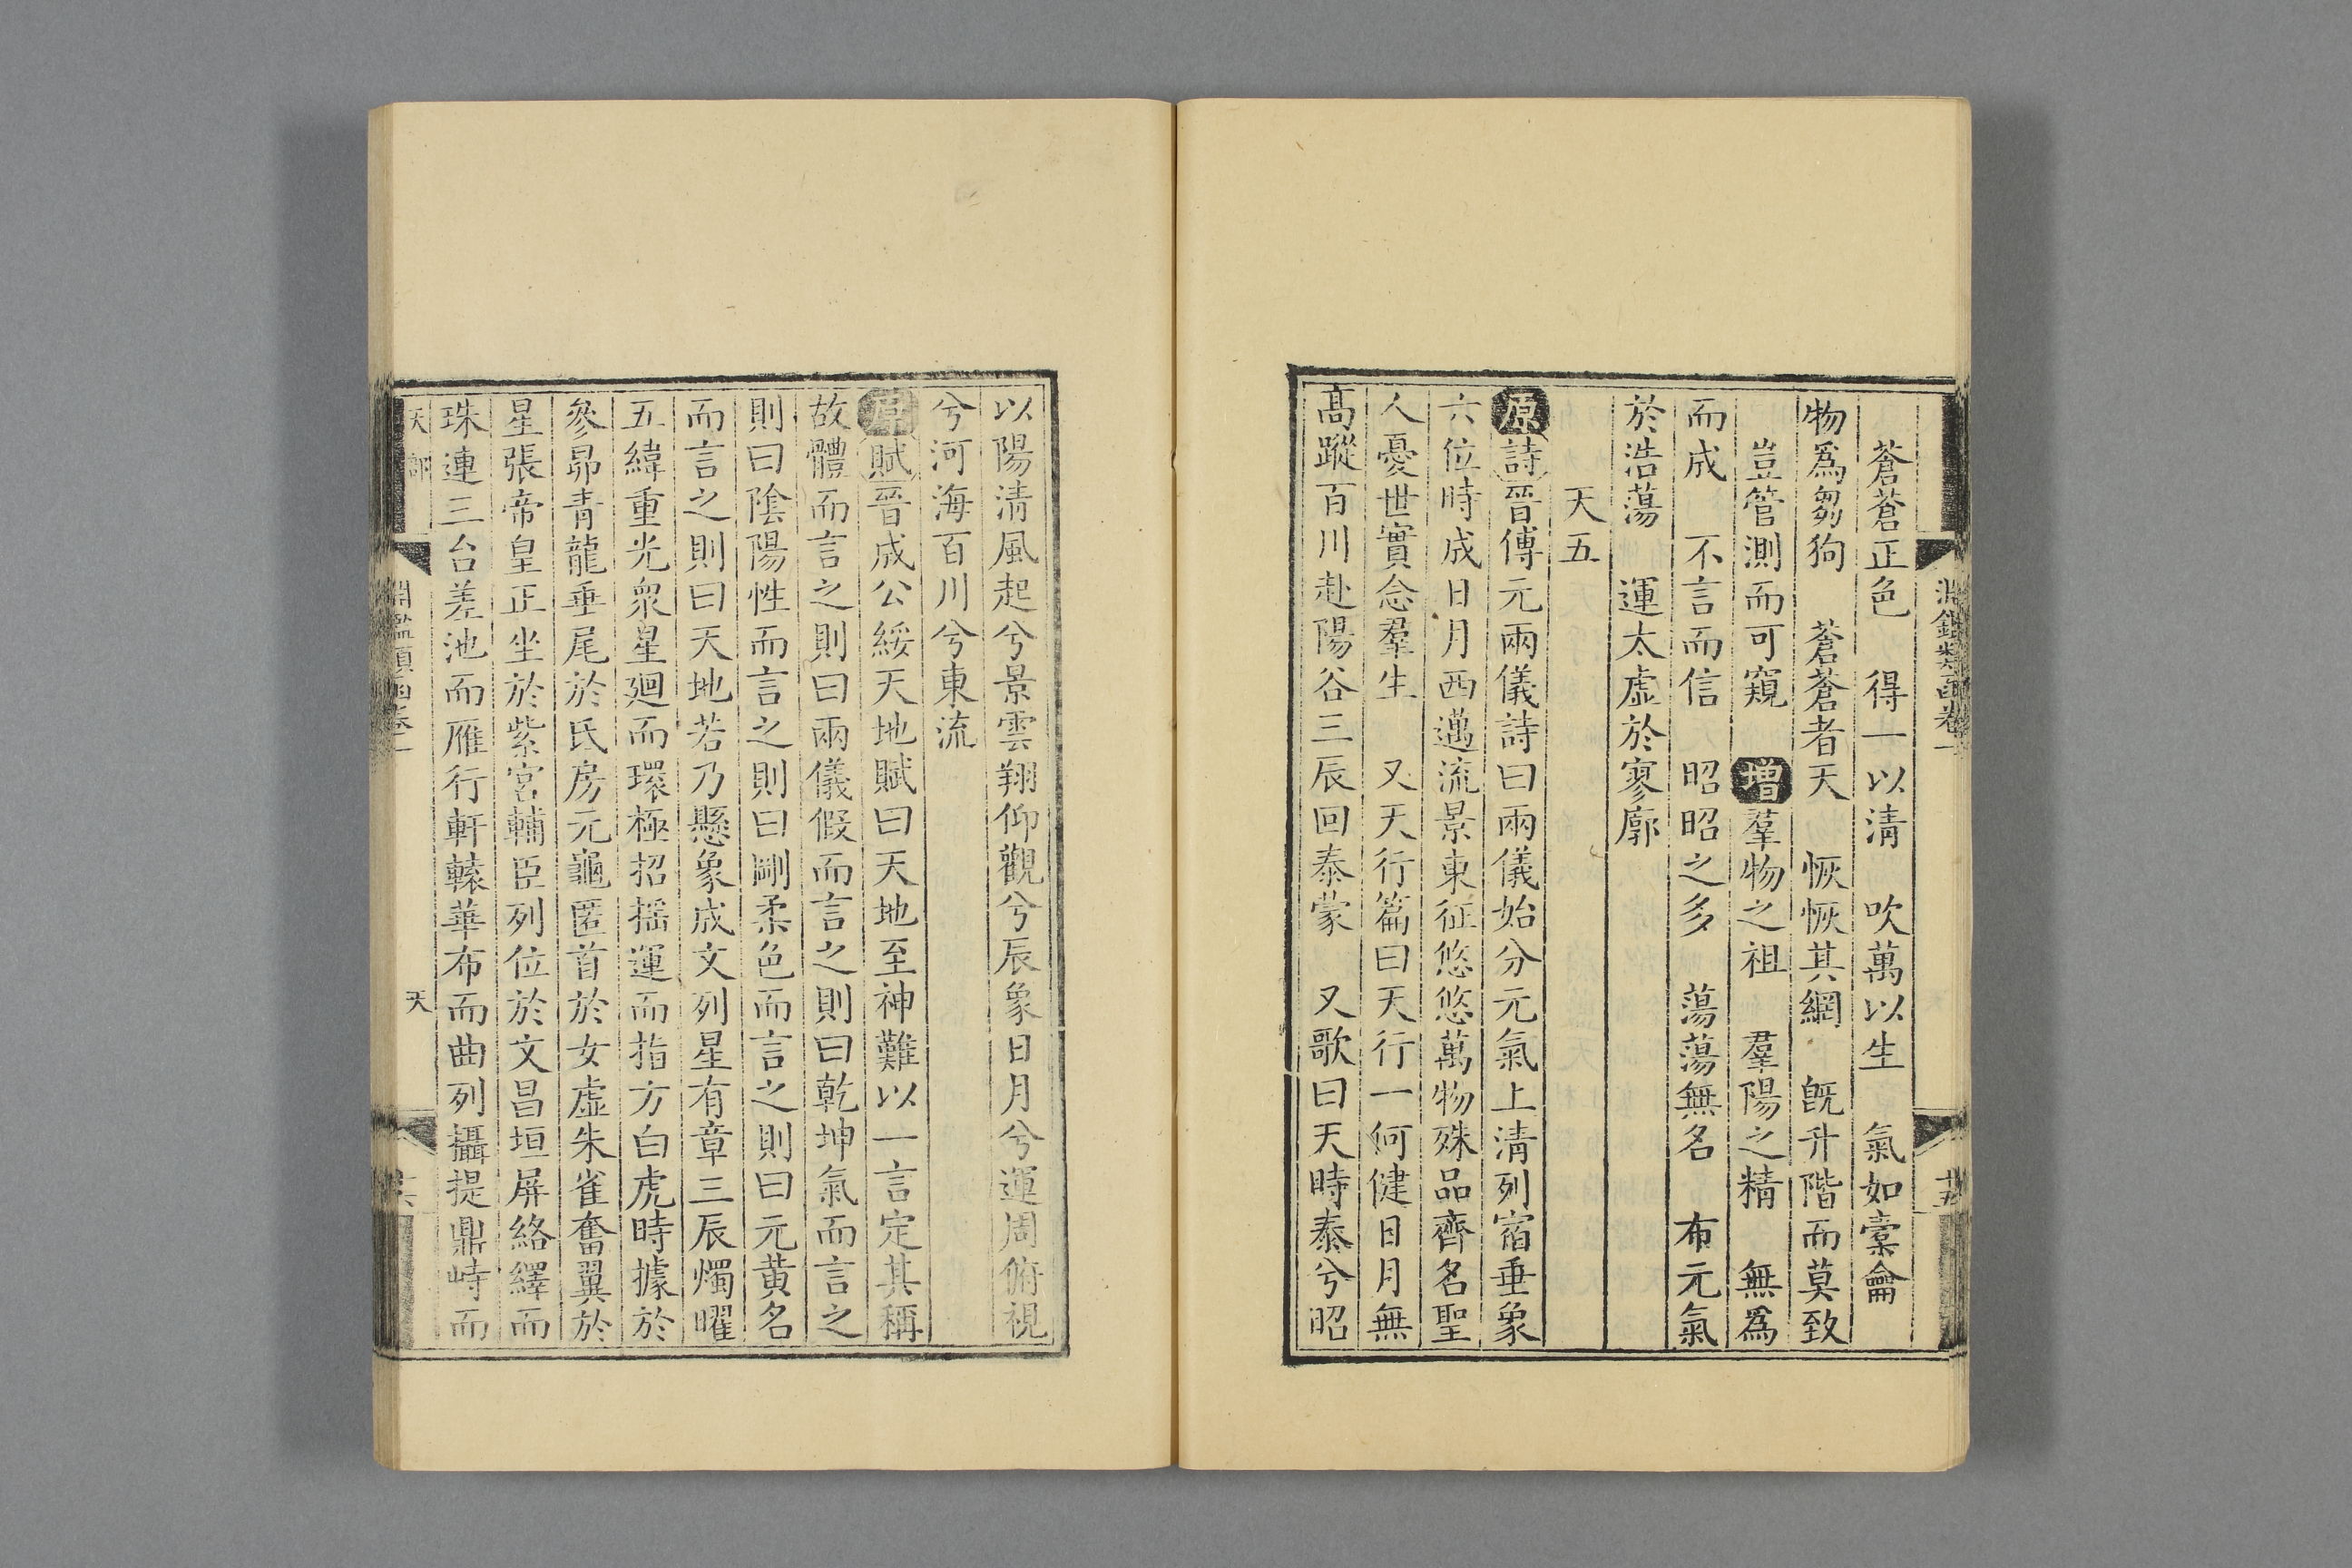 淵鑑類函卷一
十五
蒼蒼正色　得一以清　吹萬以生　氣如橐龠
物爲芻狗　蒼蒼者天　恢恢其網　旣升階而莫致
豈管測而可窺　增羣物之祖　羣陽之精　無爲
而成　不言而信　昭昭之多　蕩蕩無名　布元氣
於浩蕩　運太虛於寥廓
天五
原詩晉傅元兩儀詩曰兩儀始分元氣上清列宿垂象
六位時成日月西邁流景東征悠悠萬物殊品齊名聖
人憂世實念羣生　又天行篇曰天行一何健日月無
高蹤百川赴陽谷三辰回泰蒙　又歌曰天時泰兮昭
以陽清風起兮景雲翔仰觀兮辰象日月兮運周俯視
兮河海百川兮東流
原賦晉成公綏天地賦曰天地至神難以一言定其稱
故體而言之則曰兩儀假而言之則曰乾坤氣而言之
則曰陰陽性而言之則曰剛柔色而言之則曰元黃名
而言之則曰天地若乃懸象成文列星有章三辰燭曜
五緯重光衆星廻而環極招搖運而指方白虎時據於
參昴青龍垂尾於氐房元龜匿首於女虛朱雀奮翼於
星張帝皇正坐於紫宮輔臣列位於文昌垣屏絡繹而
珠連三台差池而雁行軒轅華布而曲列攝提鼎峙而
天部
淵鑑類函卷一
天